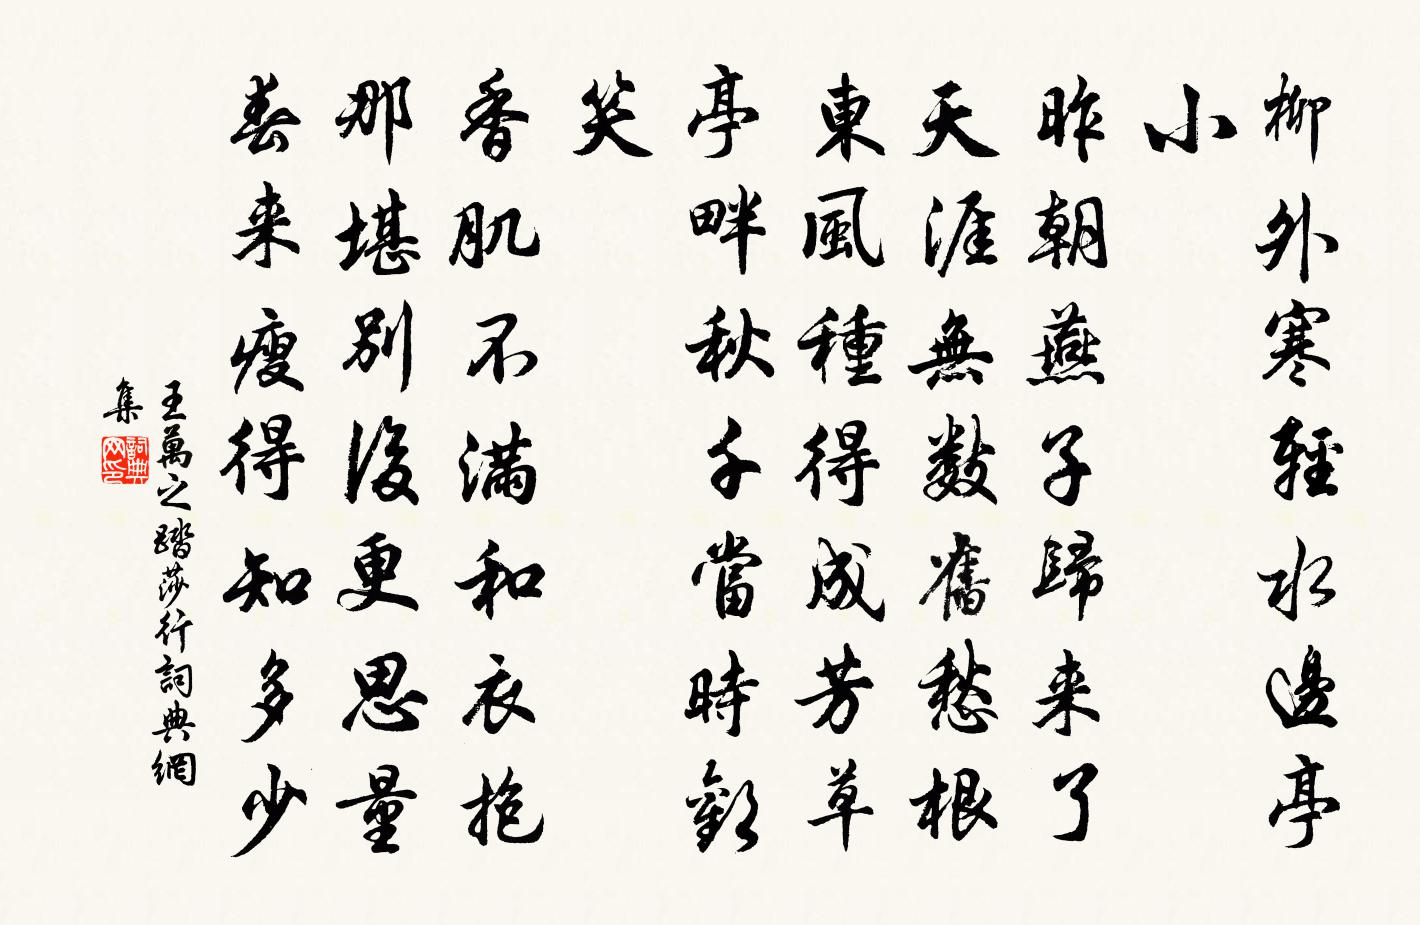 柳外寒輕水邊亭
小
昨朝燕子歸来了
天涯無數舊愁根
東風種得成芳草
亭畔秋千當時歡
笑
香肌不滿和衣抱
那堪別後更思量
春来瘦得知多少
王萬之踏莎行詞典網
集
詞典
网印